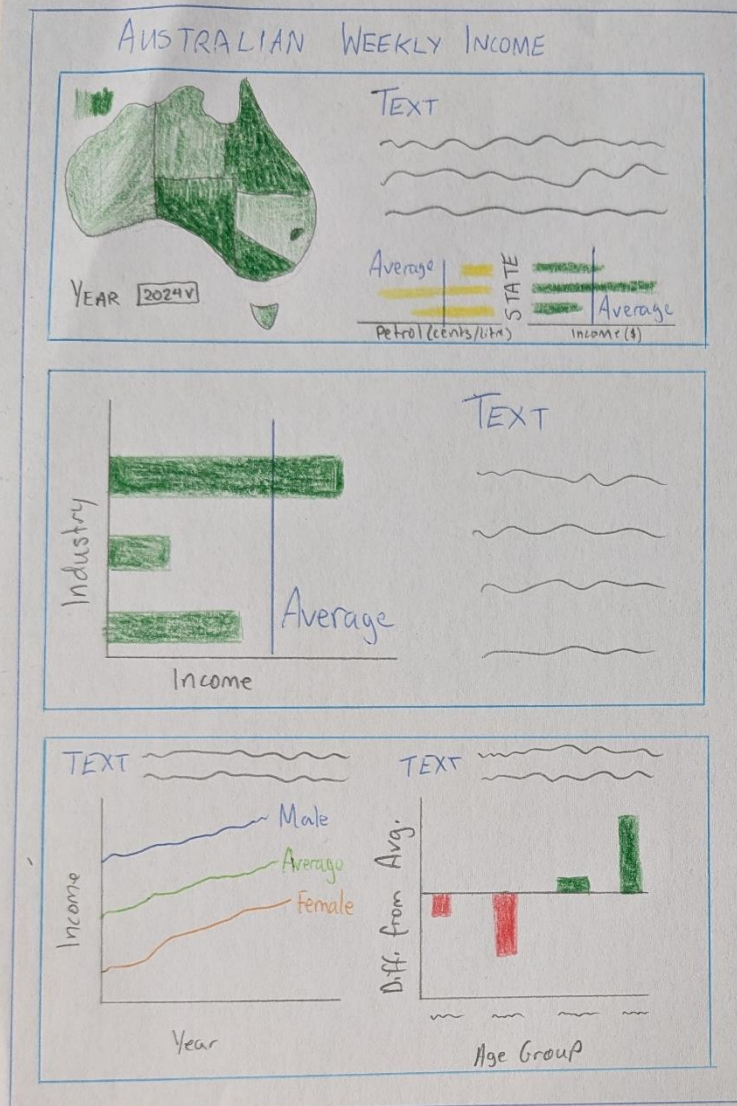 AUSTRALIAN WEEKLY INCOME
TEXT
YEAR 2024
Average
STATE
Average
Petrol (cents/litre)
Income ($)
TEXT
Industry
Average
Income
TEXT
Male
Average
Female
Income
Year
TEXT
Diff. from Avg.
Age Group